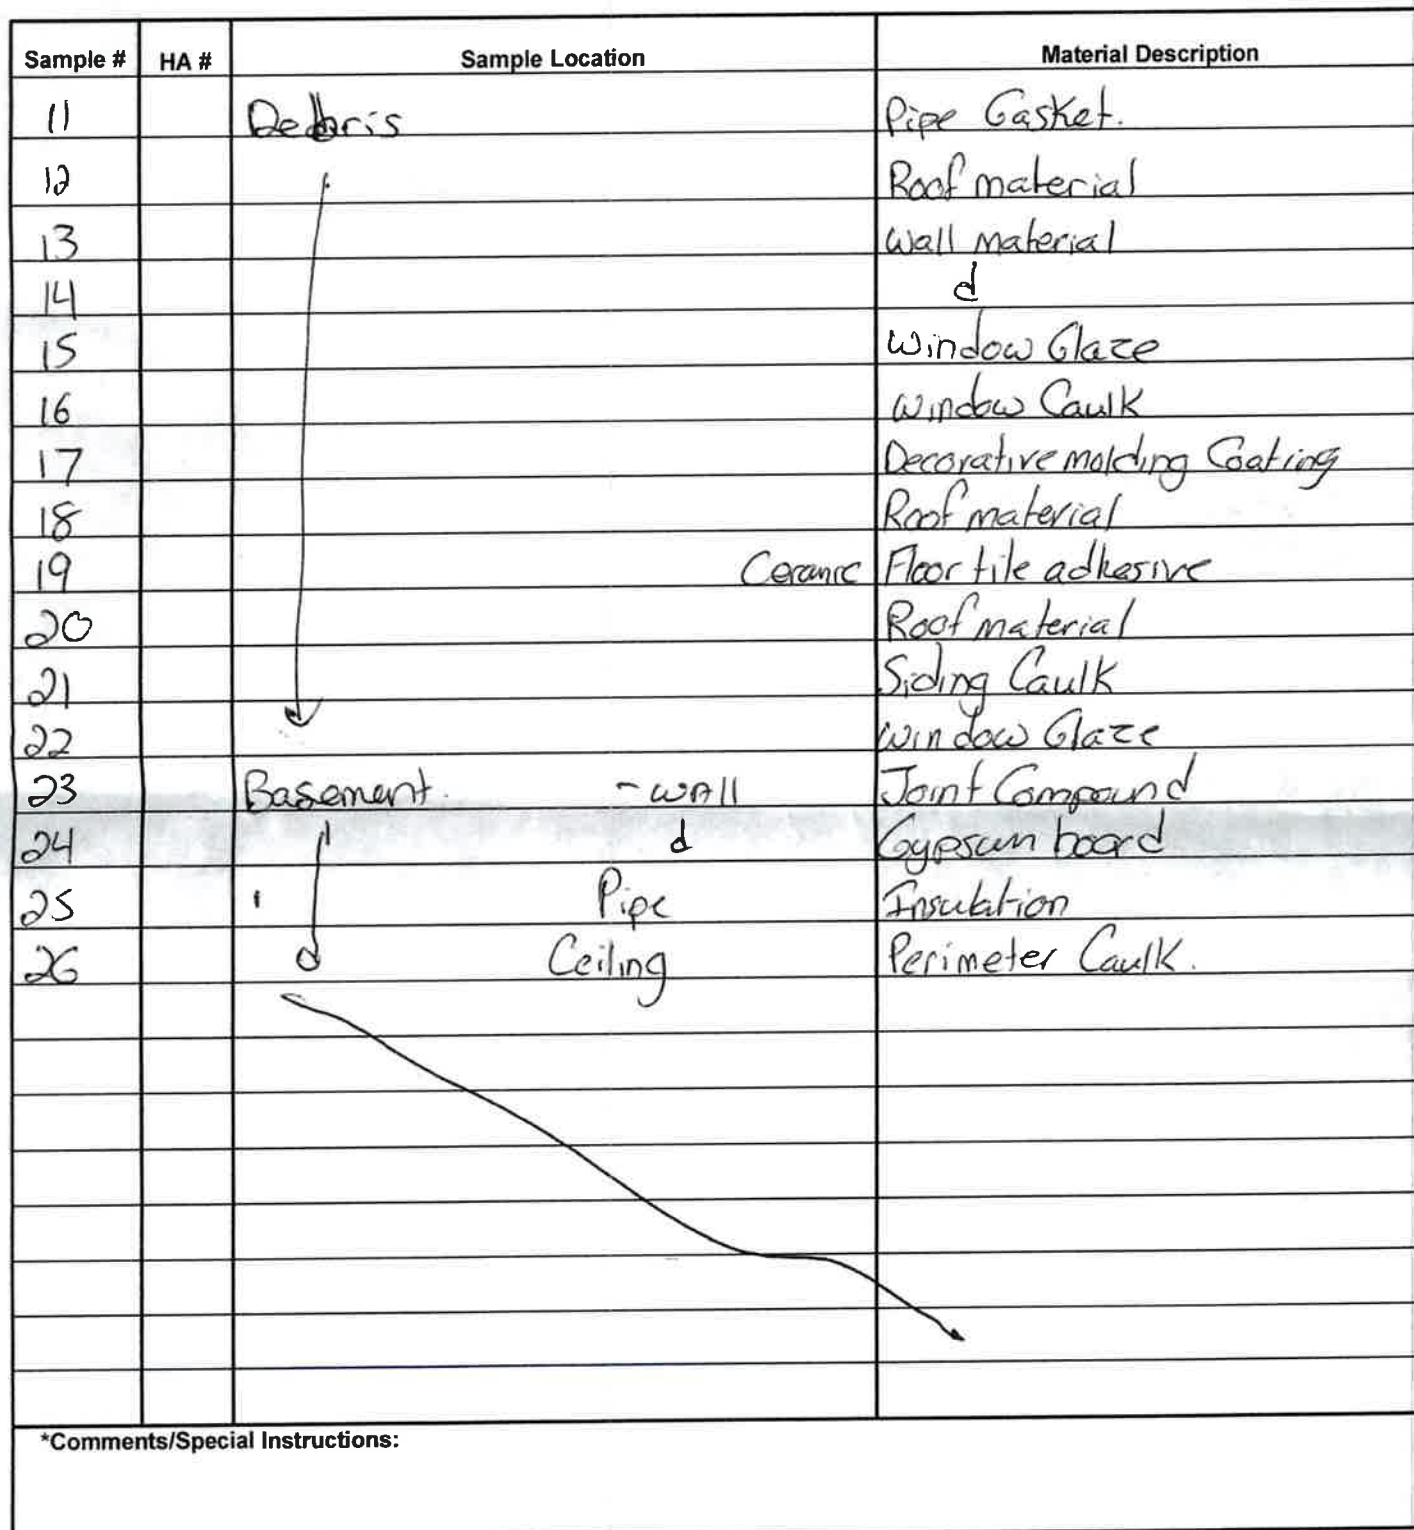 Sample # HA # Sample Location Material Description
11 Debris Pipe Gasket.
12 Roof material
13 Wall material
14 d
15 Window Glaze
16 Window Caulk
17 Decorative molding Coating
18 Roof material
19 Ceramic Floor tile adhesive
20 Roof material
21 Siding Caulk
22 Window Glaze
23 Basement. - WAll Joint Compound
24 d Gypsum board
25 Pipe Insulation
26 Ceiling Perimeter Caulk.
*Comments/Special Instructions: